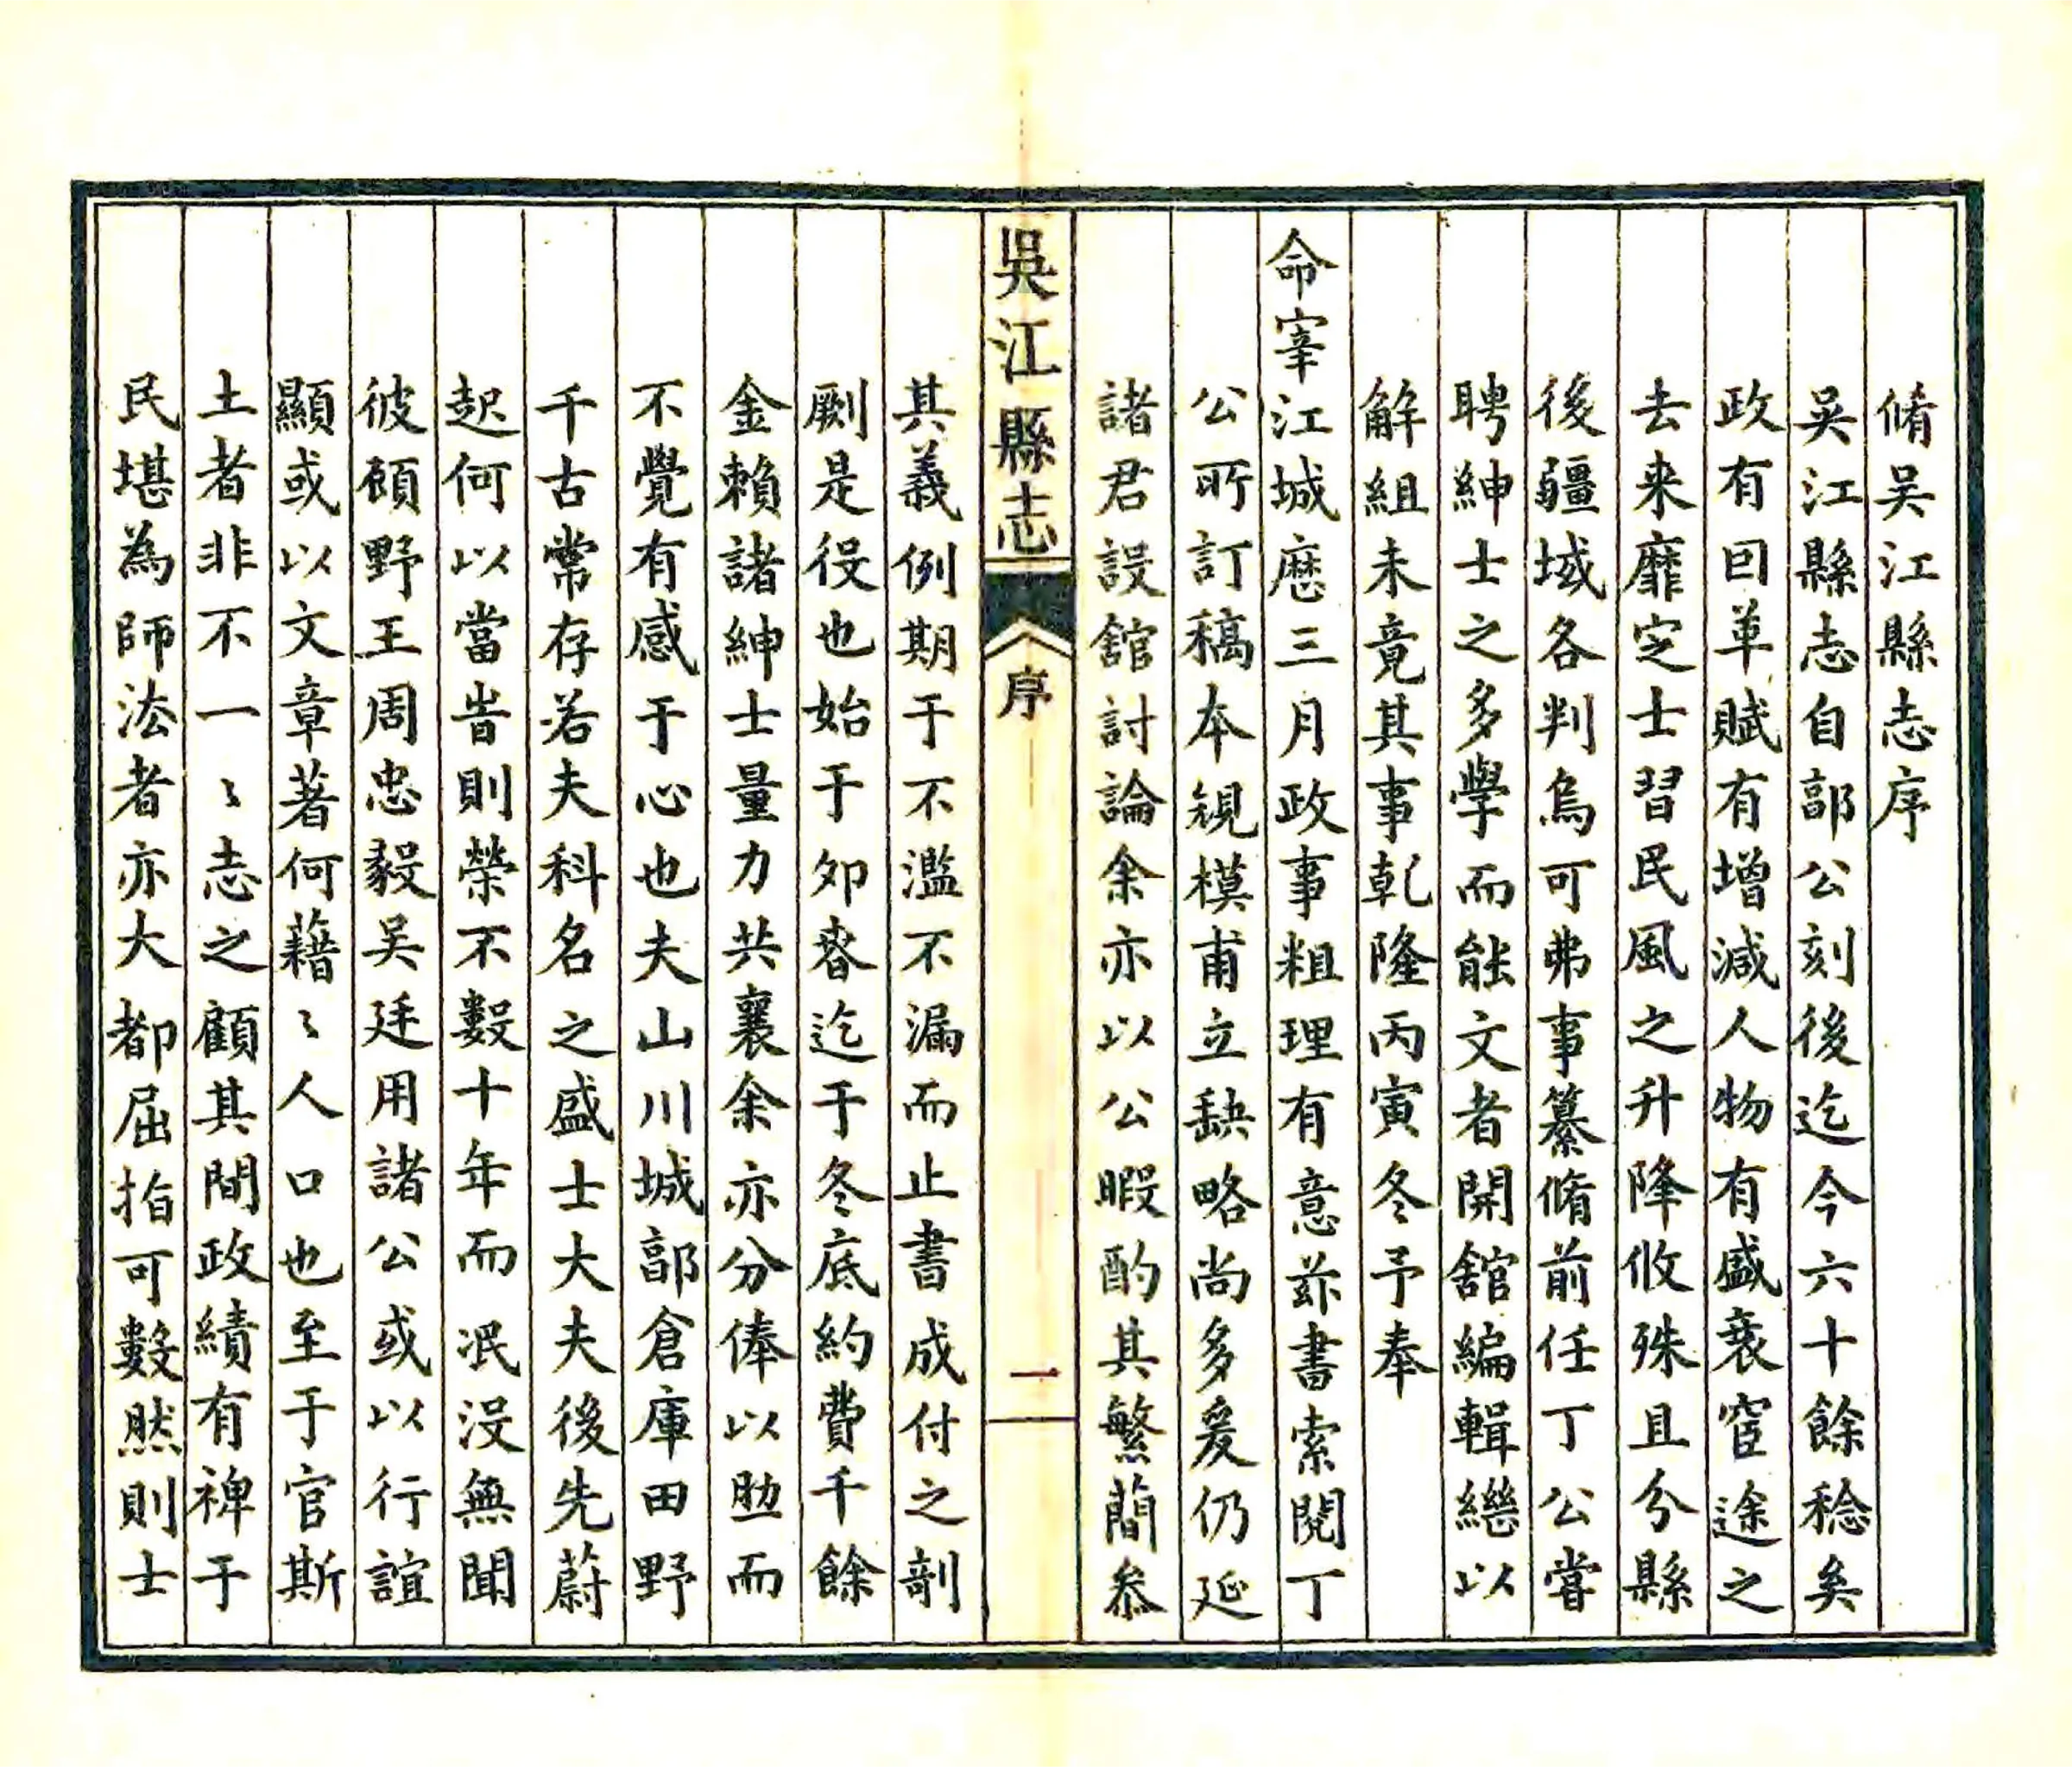 脩吴江縣志序
吴江縣志自郭公刻後迄今六十餘稔矣
政有因革賦有增减人物有盛衰宦途之
去来靡定士習民風之升降攸殊且分縣
後疆域各判烏可弗事纂脩前任丁公嘗
聘紳士之多學而能文者開舘編輯繼以
解組未竟其事乾隆丙寅冬予奉
命宰江城歷三月政事粗理有意兹書索閲丁
公所訂稿本規模甫立缺略尚多爰仍延
諸君設舘討論余亦以公暇酌其繁簡叅
吳江縣志
序
一
其義例期于不濫不漏而止書成付之剞
劂是役也始于夘春迄于冬底約費千餘
金賴諸紳士量力共襄余亦分俸以助而
不覺有感于心也夫山川城郭倉庫田野
千古常存若夫科名之盛士大夫後先蔚
起何以當旹則榮不數十年而泯没無聞
彼顧野王周忠毅吴廷用諸公或以行誼
顯或以文章著何藉〻人口也至于官斯
土者非不一〻志之顧其間政績有裨于
民堪為師法者亦大都屈指可數然則士